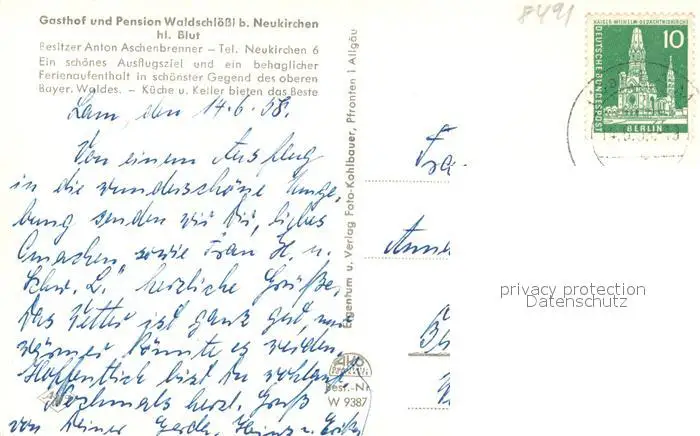 Gasthof und Pension Waldschlößl b. Neukirchen
hl. Blut
Besitzer Anton Aschenbrenner – Tel. Neukirchen 6
Ein schönes Ausflugsziel und ein behaglicher
Ferienaufenthalt in schönster Gegend des oberen
Bayer. Waldes. – Küche u. Keller bieten das Beste
8491
KAISER-WILHELM-GEDÄCHTNISKIRCHE
10
DEUTSCHE BUNDESPOST
BERLIN
Lam, den 14.6.58.
Von einem Ausflug
in die wunderschöne Umge-
bung senden wir Dir, liebes
Omachen, sowie Frau H. u.
Schw. L." herzliche Grüße.
Das Wetter ist ganz gut, nur
wärmer könnte es werden.
Hoffentlich bist Du wohlauf.
Nochmals herzl. Gruß
von Deiner Gerda, Heinz u. Erika
Eigentum u. Verlag Foto-Kohlbauer, Pfronten i Allgäu
Best.-Nr.
W 9387
Fra
Anne
privacy protection
Datenschutz